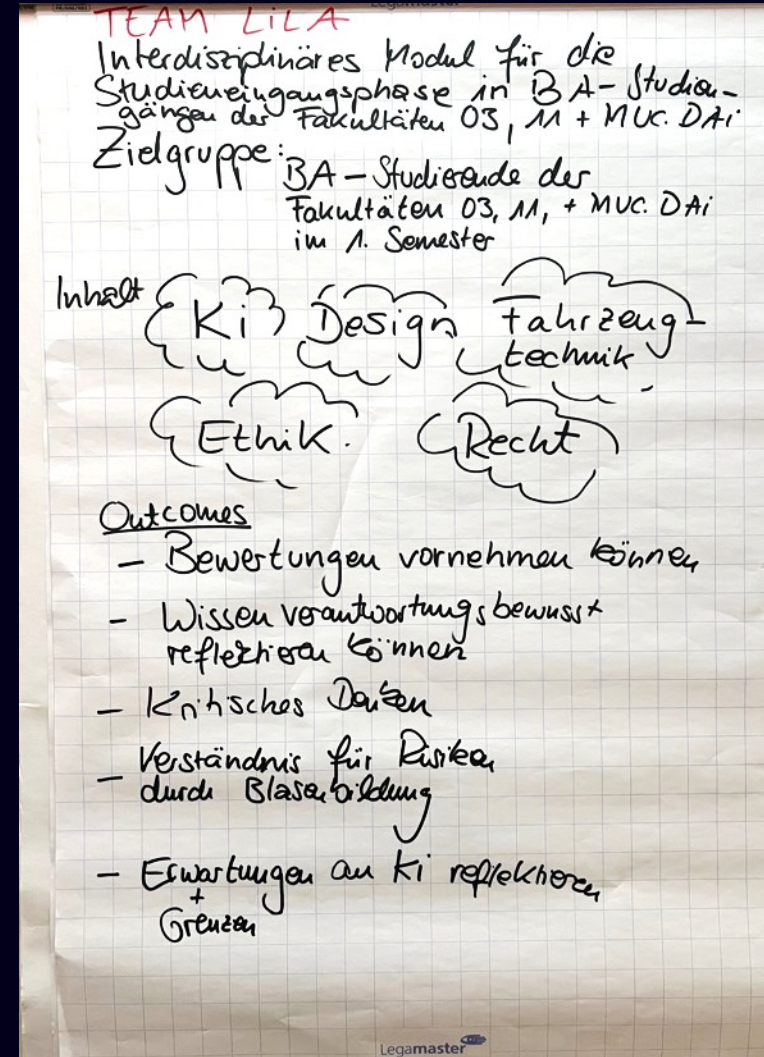 TEAM LiLA
Interdisziplinäres Modul für die
Studieneingangsphase in BA-Studien-
gängen der Fakultäten 03, 11 + MUC.DAi
Zielgruppe:
BA-Studierende der
Fakultäten 03, 11, + MUC.DAi
im 1. Semester
Inhalt
Ki Design Fahrzeug-
technik
Ethik. Recht
Outcomes
- Bewertungen vornehmen können
- Wissen verantwortungsbewusst
reflektieren können
- Kritisches Denken
- Verständnis für Risiken
durch Blasenbildung
- Erwartungen an Ki reflektieren
+
Grenzen
Legamaster